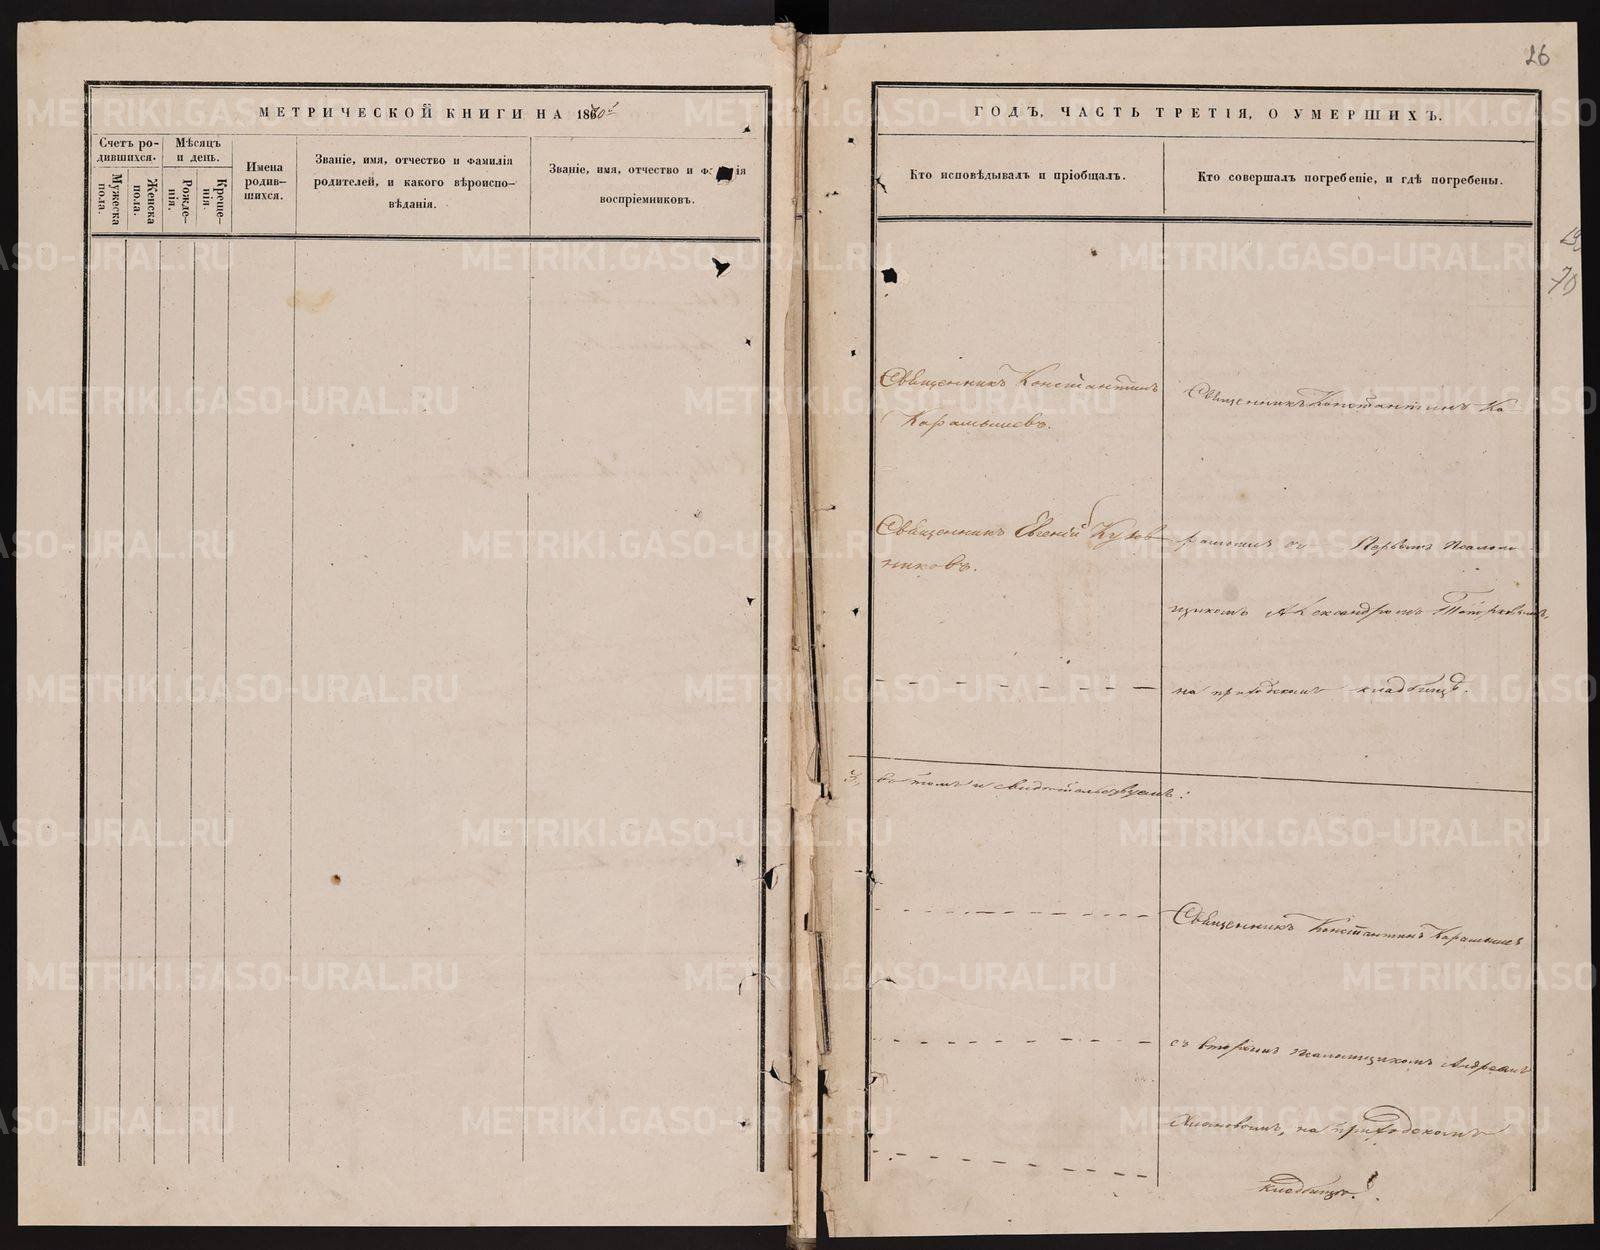 МЕТРИЧЕСКОЙ КНИГИ НА 1870
Счетъ родившихся.
Мѣсяцъ и день.
Мужеска пола.
Женска пола.
Рожденія.
Крещенія.
Имена родившихся.
Званіе, имя, отчество и фамилія
родителей, и какого вѣроиспо-
вѣданія.
Званіе, имя, отчество и фамилія
воспріемниковъ.
26
ГОДЪ, ЧАСТЬ ТРЕТІЯ, О УМЕРШИХЪ.
Кто исповѣдывалъ и пріобщалъ.
Кто совершалъ погребеніе, и гдѣ погребены.
70
Священникъ Константинъ
Карамышевъ.
Священникъ Евгеній
никовъ.
въ томъ и свидѣтельствуемъ:
Священникъ Константинъ Ка
рамышевъ съ Первымъ Псаломщ
щикомъ Александромъ
на приходскомъ кладбищѣ.
Священникъ Константинъ Карамышевъ
съ вторымъ псаломщикомъ Андреемъ
на приходскомъ
кладбищѣ.
METRIKI.GASO-URAL.RU